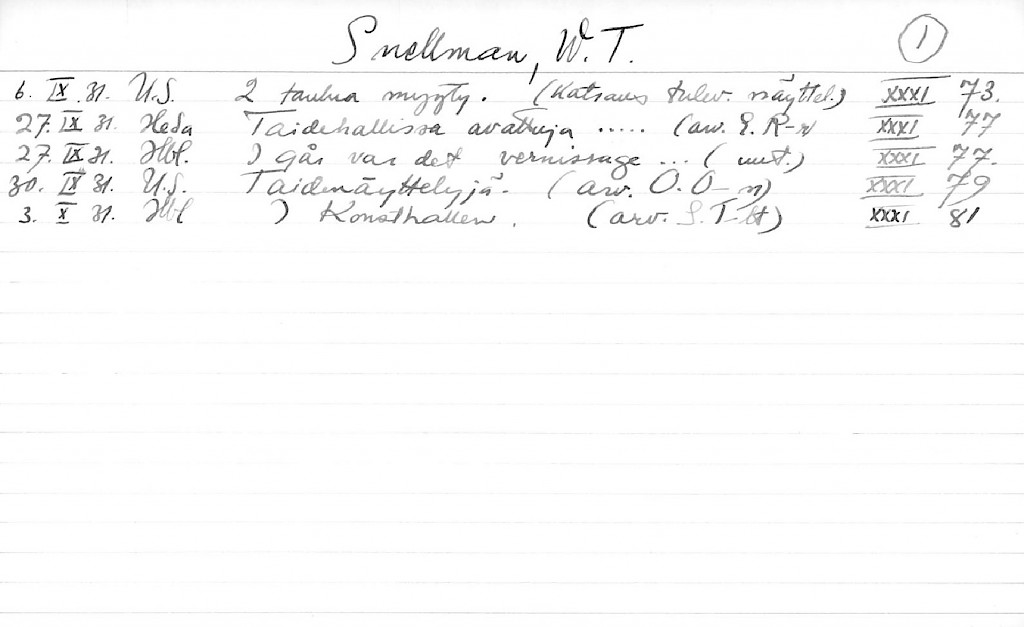 Snellman, W. T. 1
6. IX. 31. U.S. 2 taulua myyty. (Katsaus tulev. näyttel.) XXXI 73.
27. IX 31. Heda Taidehallissa avattuja ..... (arv. E. R-n XXXI 77
27. IX 31. Hbl. I går var det vernissage ... (uut.) XXXI 77.
30. IX 31. U.S. Taidenäyttelyjä. (arv. O. O-n) XXXI 79
3. X 31. Hbl I Konsthallen. (arv. S. T-lt) XXXI 81